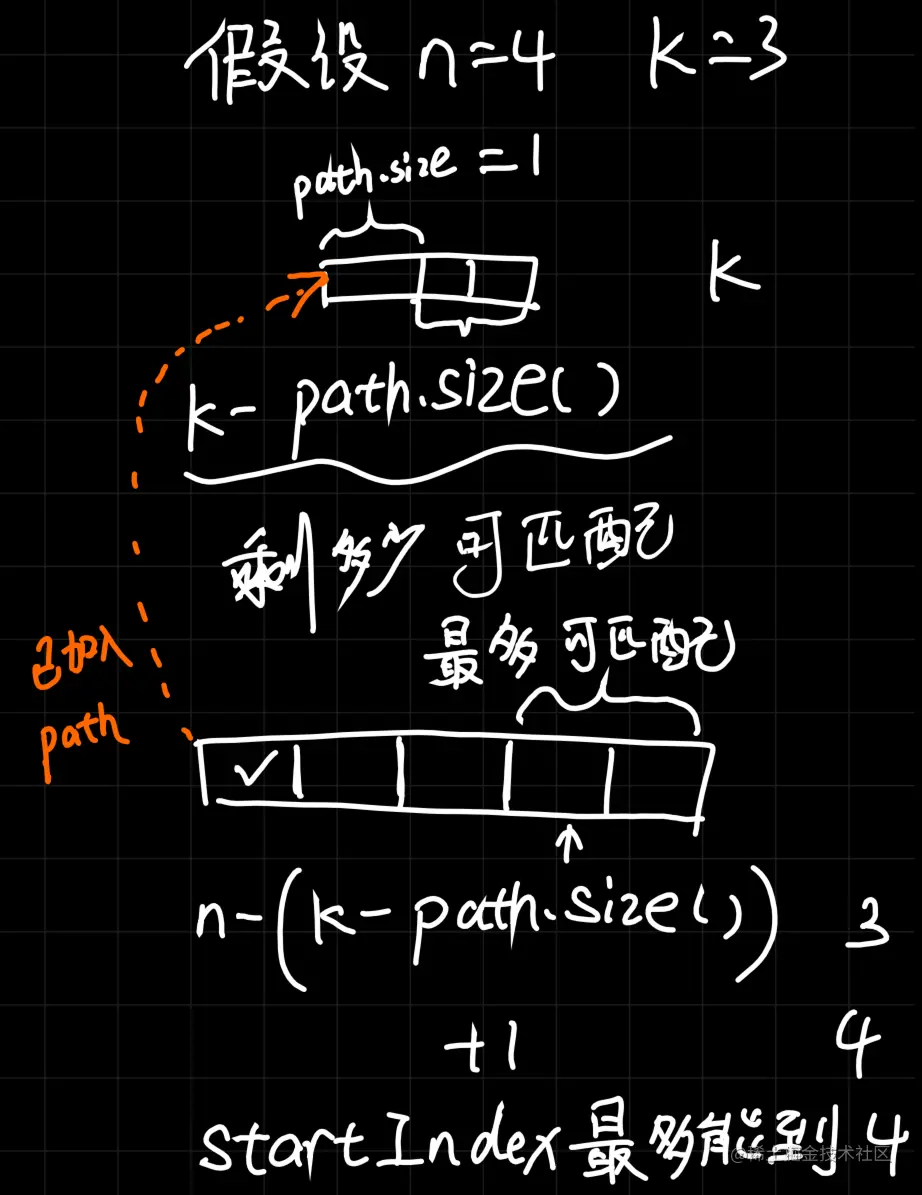 假设 n=4 k=3
path.size =1
k
k- path.size()
剩多少 可匹配
最多 可匹配
已加入
path
n-(k-path.size()) 3
+1 4
startIndex最多能到4
@稀土掘金技术社区